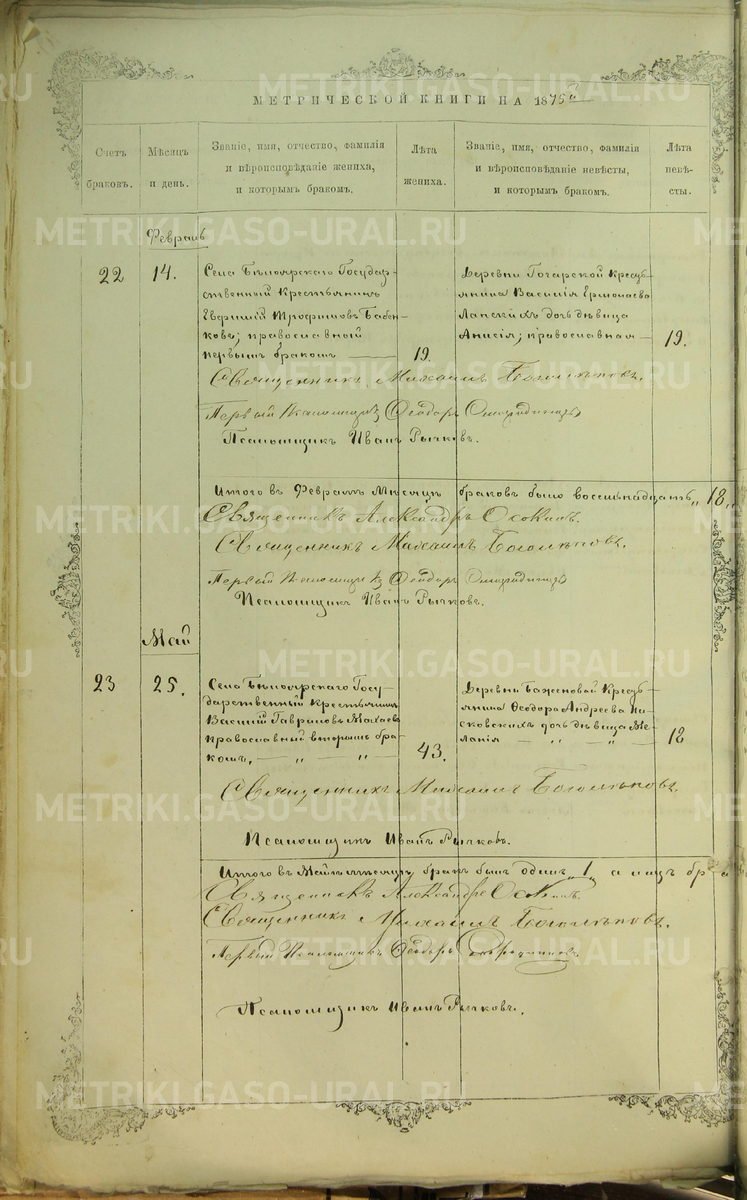 МЕТРИЧЕСКОЙ КНИГИ НА 1875й
Счетъ браковъ.
Мѣсяцъ и день.
Званіе, имя, отчество, фамилія и вѣроисповѣданіе жениха, и которымъ бракомъ.
Лѣта жениха.
Званіе, имя, отчество, фамилія и вѣроисповѣданіе невѣсты, и которымъ бракомъ.
Лѣта невѣсты.
Февраль
22
14.
Села Бѣлоярскаго Государ-
ственный крестьянинъ
Евфимій Трофимовъ Бабен-
ковъ; православный
первымъ бракомъ
19.
Деревни Гагарской крестья-
нина Василія Ермолаева
дочь дѣвица
Анисія; православная
19.
Священникъ Михаилъ Боголѣповъ.
Первый Псаломщикъ Ѳеодоръ
Псаломщикъ Иванъ Рычковъ.
Итого въ Февралѣ Мѣсяцѣ браковъ было восемнадцать „18„
Священникъ Александръ Осокинъ.
Священникъ Михаилъ Боголѣповъ.
Первый Псаломщикъ Ѳеодоръ
Псаломщикъ Иванъ Рычковъ.
Май
23
25.
Села Бѣлоярскаго Госу-
дарственный крестьянинъ
Василій Гавриловъ Махаевъ
православный вторымъ бра-
комъ, — „ — „ —
43.
Деревни Баженовой крестья-
нина Ѳеодора Андреева Пи-
сковскихъ дочь дѣвица Ме-
ланія — „ — „ —
18
Священникъ Михаилъ Боголѣповъ.
Псаломщикъ Иванъ Рычковъ.
Итого въ Маѣ мѣсяцѣ бракъ былъ одинъ „1„
Священникъ Александръ Осокинъ.
Священникъ Михаилъ Боголѣповъ.
Первый Псаломщикъ Ѳеодоръ
Псаломщикъ Иванъ Рычковъ.
METRIKI.GASO-URAL.RU